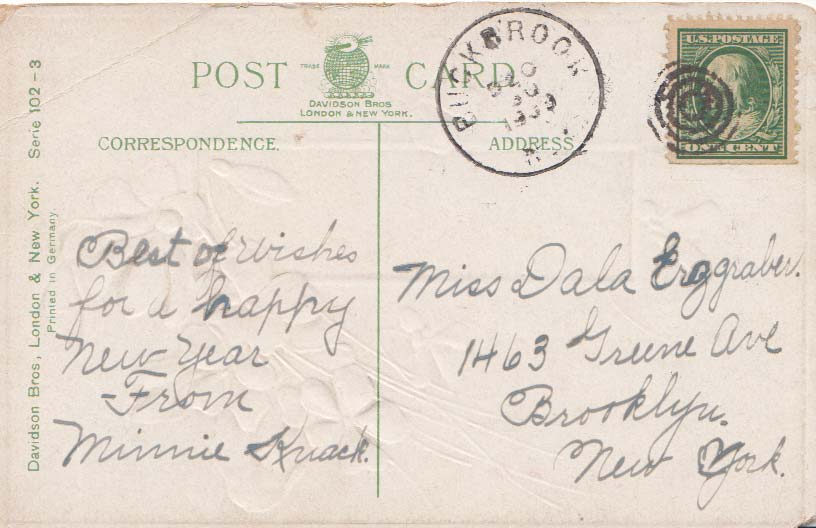 POST CARD
TRADE MARK
DAVIDSON BROS
LONDON & NEW YORK.
CORRESPONDENCE.
ADDRESS
U.S. POSTAGE
ONE CENT
BROOK
Davidson Bros, London & New York. Serie 102-3
Printed in Germany.
Best of Wishes
for a happy
New Year
From
Minnie Knack.
Miss Dala Erggraber.
1463 Greene Ave
Brooklyn.
New York.